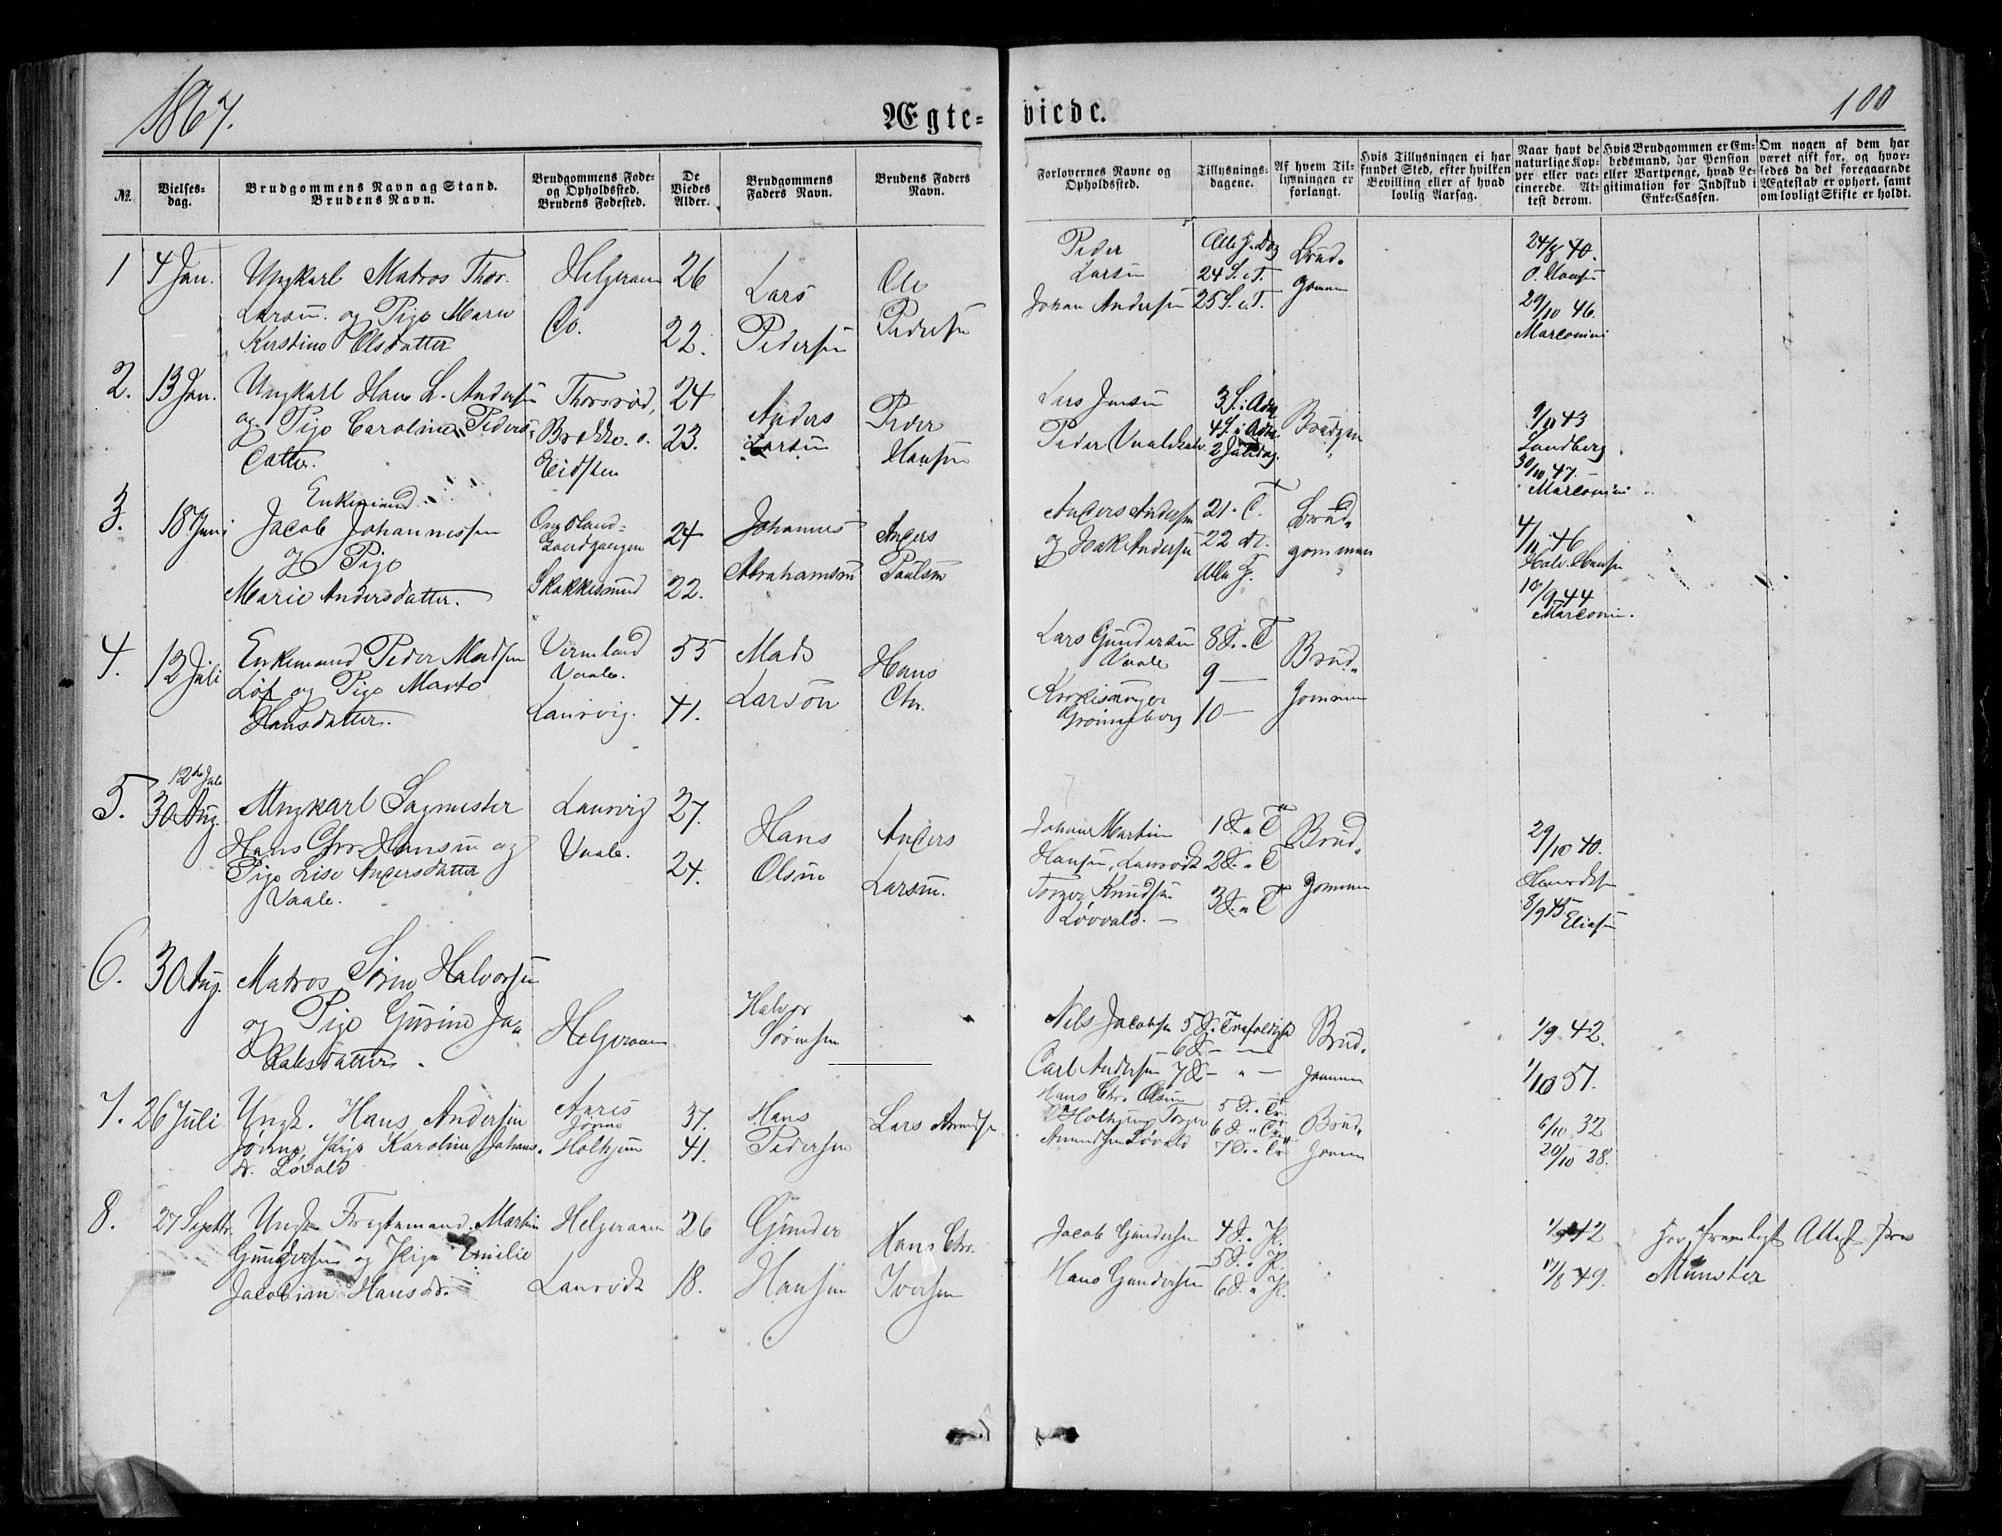 1867.
Ægte-
viede.
100
№.
Vielses-
dag.
Brudgommens Navn og Stand.
Brudens Navn.
Brudgommens Føde-
og Opholdssted.
Brudens Fødested.
De
Viedes
Alder.
Brudgommens
Faders Navn.
Brudens Faders
Navn.
Forlovernes Navne og
Opholdssted.
Tillysnings-
dagene.
Af hvem Til-
lysningen er
forlangt.
Hvis Tillysningen ei har
fundet Sted, efter hvilken
Bevilling eller af hvad
lovlig Aarsag.
Naar havt de
naturlige Kop-
per eller vac-
cinerede. At-
test derom.
Hvis Brudgommen er Em-
bedsmand, har Pension
eller Vartpenge, hvad Le-
gitimation for Indskud i
Enke-Cassen.
Om nogen af dem har
været gift før, og hvor-
ledes da det foregaaende
Ægteskab er ophørt, samt
om lovligt Skifte er holdt.
1
4 Jan.
Ungkarl Matros Thor
Larsen og Pige Maren
Kirstine Olsdatter
Helgeraaen
Do.
26
22.
Lars
Pedersen
Ole
Pedersen
Peder
Larsen
Johan Andersen
24 S. e. T.
25 S. e. T.
Brud-
gommen
24/8 40.
O. Clausen
29/10 46.
2.
13 Jan.
Ungkarl Hans L. Andersen
og Pige Caroline Peders-
datter.
Thorsrød,
Eidsten
24
23.
Anders
Larsen
Peder
Hansen
Lars Jensen
3 S. i Adv.
4 S. i Adv.
2 Juledag
Brudgom
9/11 43
Sandberg
30/10 47.
3.
18 Juni
Enkemand
Jacob Johannessen
og Pige
Marie Andersdatter.
24
22.
Johannes
Abrahamsen
Anders
Paulsen
Anders Andersen
og Isak Andersen
21. T.
22 do.
Brud-
gommen
4/11 46
Halv. Hansen
18/9 44
4.
12 Juli
Enkemand Peder Madsen
Løf og Pige Marte
Hansdatter.
Vermland
Vaale.
Laurvig.
55
41.
Mads
Larsen
Hans
Chr.
Lars Gundersen
Vaale
8 S. e. T
9 —
10 —
Brud-
gommen
5.
12te Juli
30 Aug.
Ungkarl Sagmester
Hans Chr. Hansen og
Pige Lise Andersdatter
Vaale.
Laurvig
Vaale.
27.
24.
Hans
Olsen
Anders
Larsen.
Johan Martin
Hansen, Laurvig
Torger Knudsen
Løvvald. —
1 S. e. T
2 S. e. T
3 S. e. T
Brud-
gommen
29/10 40.
8/9 45 Eliasen
6.
30 Aug.
Matros Søren Halvorsen
og Pige Gurine Ja-
kobsdatter.
Helgeraaen
Halvor
Sørensen
Nils Jacobsen
5 S. e. Trefoldighed
6 S — —
Carl Andersen
7 S — " —
Brud-
gommen
1/9 42.
1/10 51.
7.
26 Juli
Ungk. Hans Andersen
Jørne, Pige Karoline Johans-
dr. Løvald
Holhjem
37.
41.
Hans
Pedersen
Lars Amundsen
Hans Chr. Olsen
Holhjem Torger
Amundsen Løvald
5 S. e. Tr.
6 S. e. Tr.
7 S. e. Tr.
Brud-
gommen
6/10 32
20/10 28.
8.
27 Septbr.
Ungk. Fragtemand Martin
Gundersen og Pige Emilie
Jacobine Hansdr.
Helgeraaen
26
18.
Gunder
Hansen
Hans Chr.
Iversen
Jacob Gundersen
Hans Gundersen
4 S. e. P.
5 S. e. P.
6 S. e. P.
1/9 42
17/8 49.
Attest fra
Münster